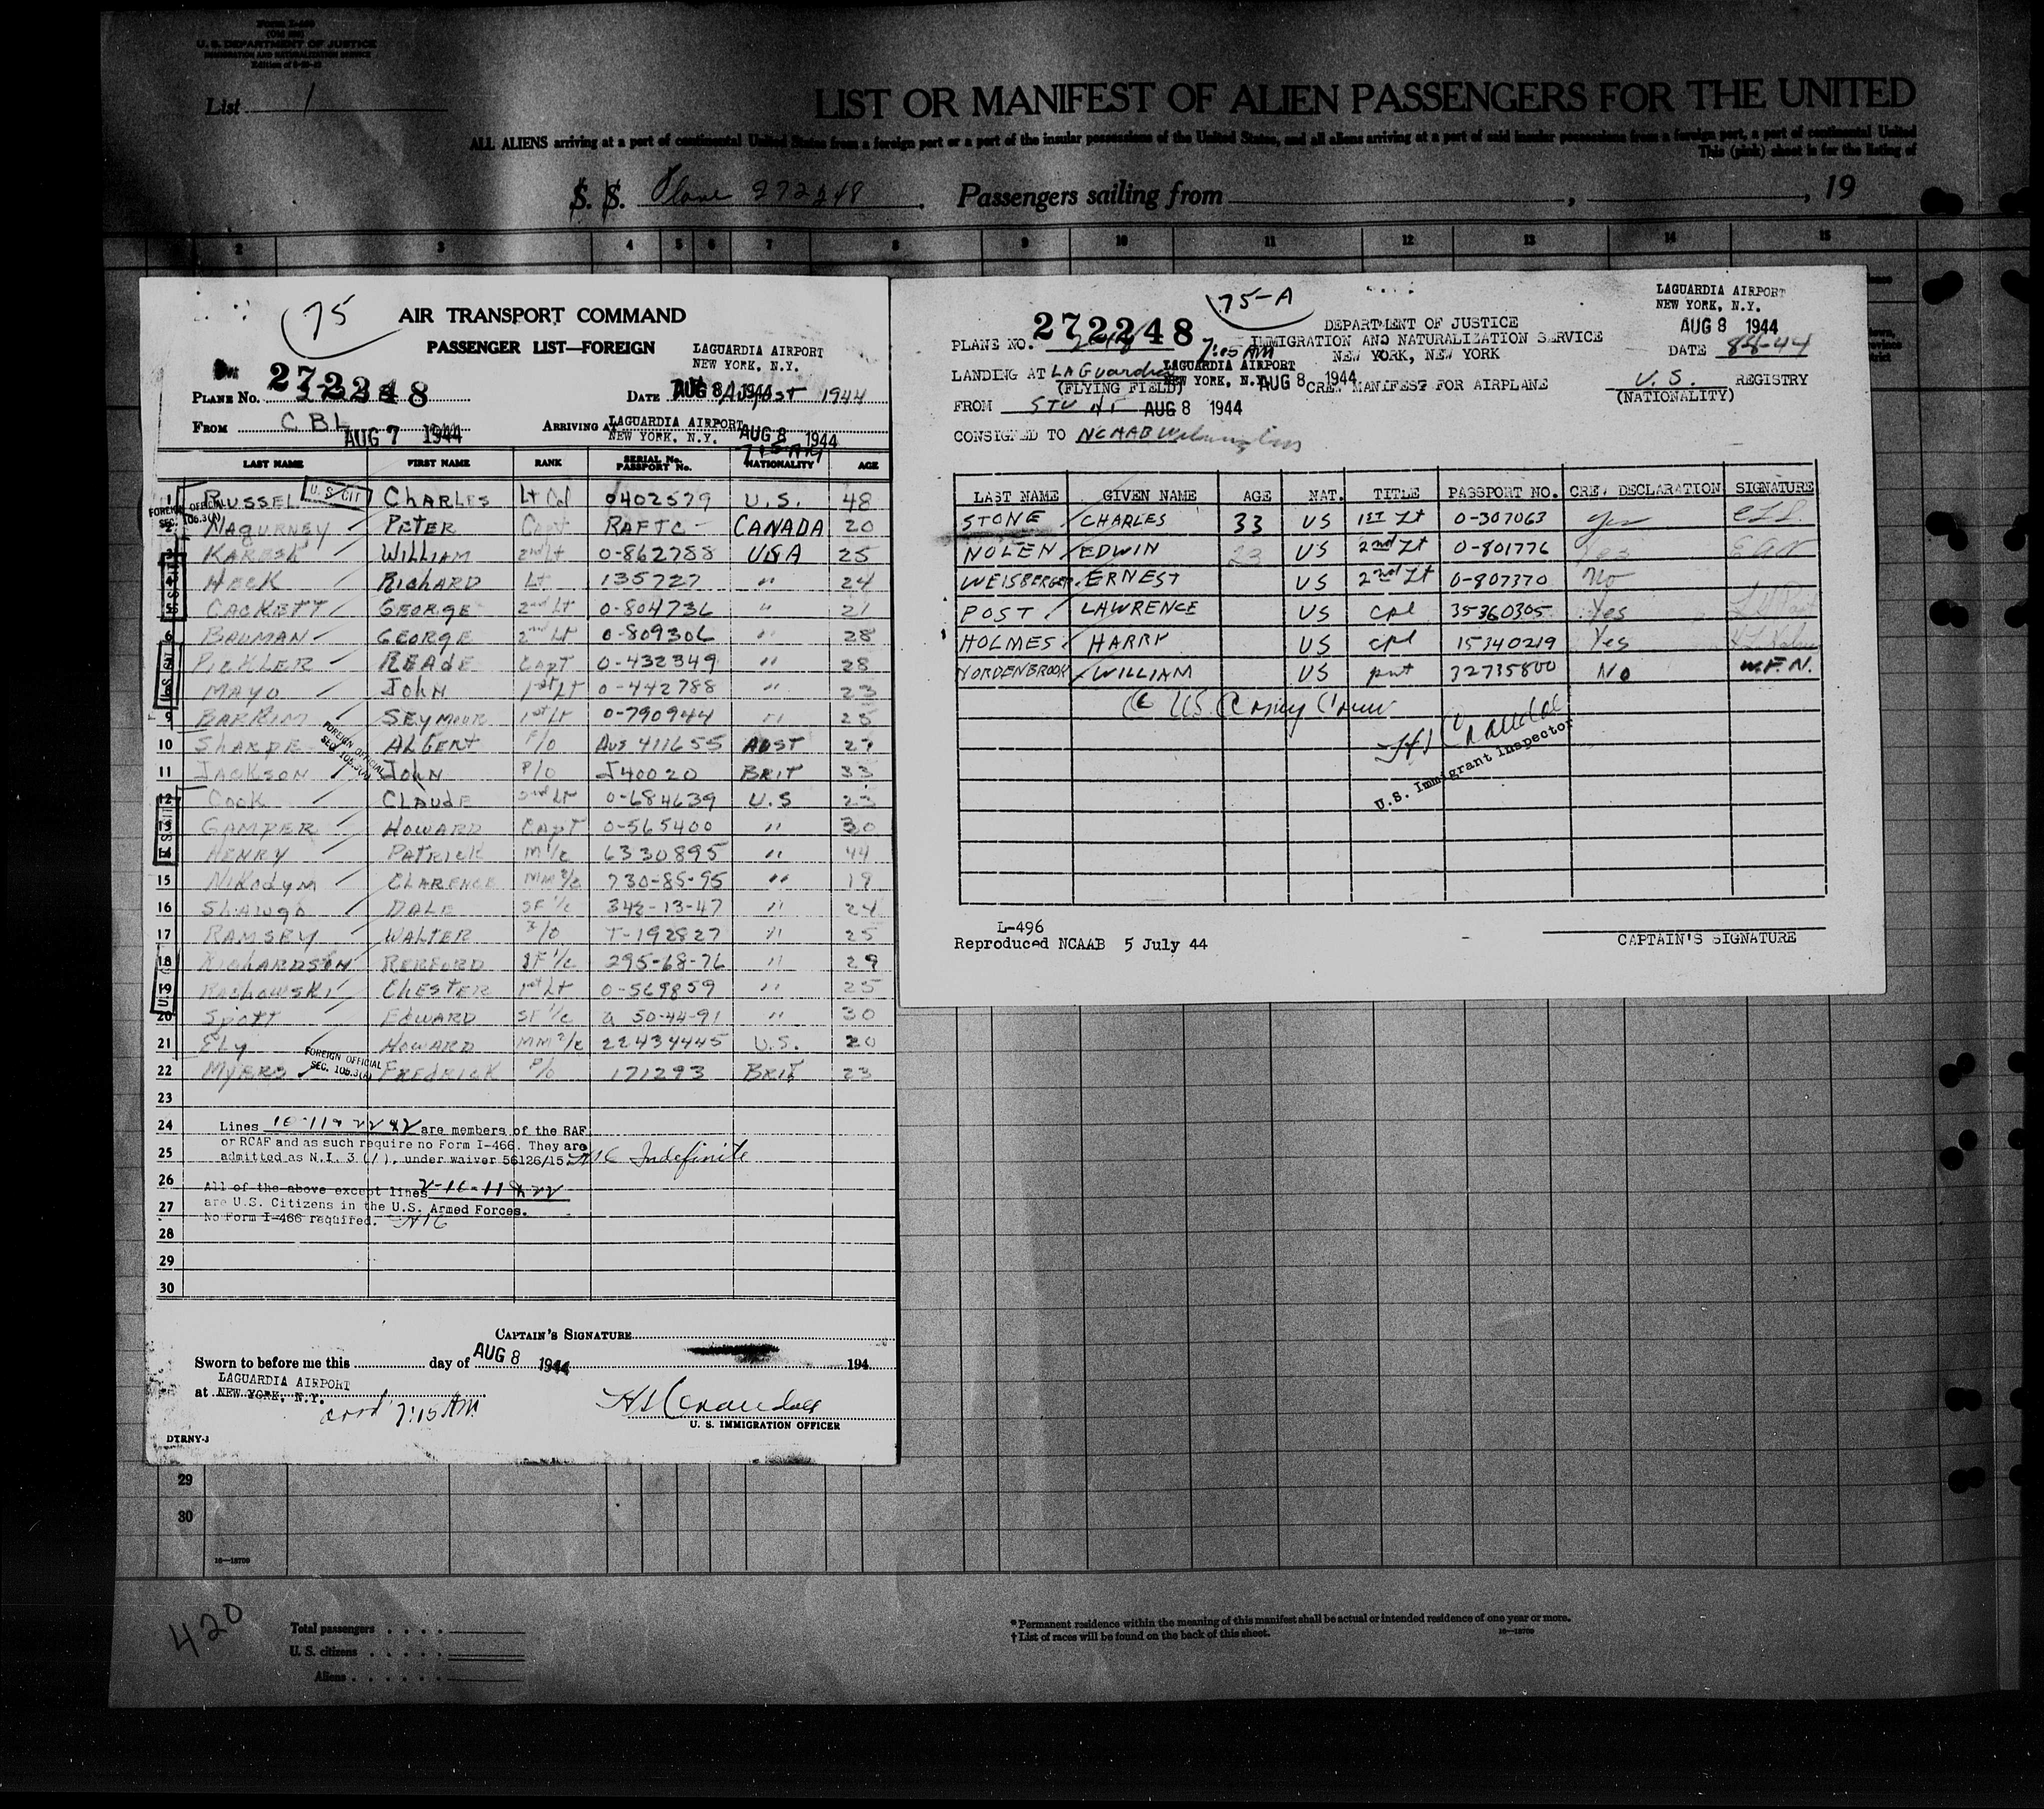 Form I-466
(Old 500)
U. S. DEPARTMENT OF JUSTICE
IMMIGRATION AND NATURALIZATION SERVICE
List 1
LIST OR MANIFEST OF ALIEN PASSENGERS FOR THE UNITED
ALL ALIENS arriving at a port of continental United States from a foreign port or a port of the insular possessions of the United States, and all aliens arriving at a port of said insular possessions from a foreign port, a port of continental United
This (pink) sheet is for the listing of
S. S. Plane 272248 Passengers sailing from , , 19
2 3 4 5 6 7 8 9 10 11 12 13 14 15
75
AIR TRANSPORT COMMAND
PASSENGER LIST—FOREIGN
LAGUARDIA AIRPORT
NEW YORK, N.Y.
PLANE NO. 272248
DATE AUG 8 1944 August 1944
FROM CBL AUG 7 1944
ARRIVING AT LAGUARDIA AIRPORT NEW YORK, N.Y. AUG 8 1944
7:15 AM
LAST NAME FIRST NAME RANK SERIAL No. PASSPORT No. NATIONALITY AGE
1 RUSSEL U. S. CIT CHARLES Lt Col 0402579 U.S. 48
FOREIGN OFFICIAL
SEC. 106.3(A)
2 MAGURNEY PETER Capt RAFTC - CANADA 20
3 WILLIAM 2nd Lt 0-862788 USA 25
4 HECK RICHARD Lt 135727 " 24
5 CACKETT GEORGE 2nd Lt 0-804736 " 21
6 BAUMAN GEORGE 2nd Lt 0-809306 " 28
READE CAPT 0-432349 " 28
MAYO JOHN 1st Lt 0-442788 " 23
9 SEYMOUR 1st Lt 0-790944 " 25
10 SHARPE ALBERT F/O Aus 411655 AUST 27
FOREIGN OFFICIAL
11 JACKSON JOHN P/O J40020 BRIT 33
12 COOK CLAUDE 2nd Lt 0-684639 U.S 23
13 GAMPER HOWARD CAPT 0-565400 " 30
14 HENRY PATRICK M 1/c 6330895 " 44
15 NIKODYM CLARENCE MM 3/c 730-85-95 " 19
16 SHAWGO DALE SF 1/c 342-13-47 " 24
17 RAMSEY WALTER F/O T-192827 " 25
18 RICHARDSON REXFORD SF 1/c 295-68-76 " 29
19 CHESTER 1st Lt 0-569859 " 25
20 SPOTT EDWARD SF 1/c 50-44-91 " 30
21 ELY HOWARD MM 2/c 22434445 U.S. 20
FOREIGN OFFICIAL
SEC. 106.3(A)
22 MYERS FREDRICK P/O 171293 BRIT 23
23
24 Lines 10-11 & 22 are members of the RAF
or RCAF and as such require no Form I-466. They are
25 admitted as N.I. 3 (1), under waiver 56126/15. Indefinite
26 All of the above except lines 2-10-11 & 22
27 are U.S. Citizens in the U.S. Armed Forces.
No Form I-466 required.
28
29
30
CAPTAIN'S SIGNATURE
Sworn to before me this day of AUG 8 1944 194
at LAGUARDIA AIRPORT
NEW YORK, N.Y.
7:15 AM
H Crandall
U. S. IMMIGRATION OFFICER
DTRNY-J
75-A
LAGUARDIA AIRPORT
NEW YORK, N.Y.
AUG 8 1944
PLANE NO. 272248
DEPARTMENT OF JUSTICE
IMMIGRATION AND NATURALIZATION SERVICE
NEW YORK, NEW YORK
DATE 8-8-44
7:15 AM
LANDING AT LAGuardia
(FLYING FIELD)
LAGUARDIA AIRPORT
NEW YORK, N.Y. AUG 8 1944
CREW MANIFEST FOR AIRPLANE
U. S. REGISTRY
(NATIONALITY)
FROM AUG 8 1944
CONSIGNED TO NCAAB Wilmington
LAST NAME GIVEN NAME AGE NAT. TITLE PASSPORT NO. CREW DECLARATION SIGNATURE
STONE CHARLES 33 US 1ST Lt 0-307063 Yes
NOLEN EDWIN 23 US 2nd Lt 0-801776 Yes
WEISBERGER ERNEST US 2nd Lt 0-807370 No
POST LAWRENCE US cpl 35360305 Yes
HOLMES HARRY US cpl 15340219 Yes
NORDENBROOK WILLIAM US pvt 32735800 No W.F.N.
U.S. Army Crew
H Crandall
U.S. Immigrant Inspector
L-496
Reproduced NCAAB 5 July 44
CAPTAIN'S SIGNATURE
29
30
16—18700
420
Total passengers
U. S. citizens
Aliens
* Permanent residence within the meaning of this manifest shall be actual or intended residence of one year or more.
† List of races will be found on the back of this sheet.
16—18700